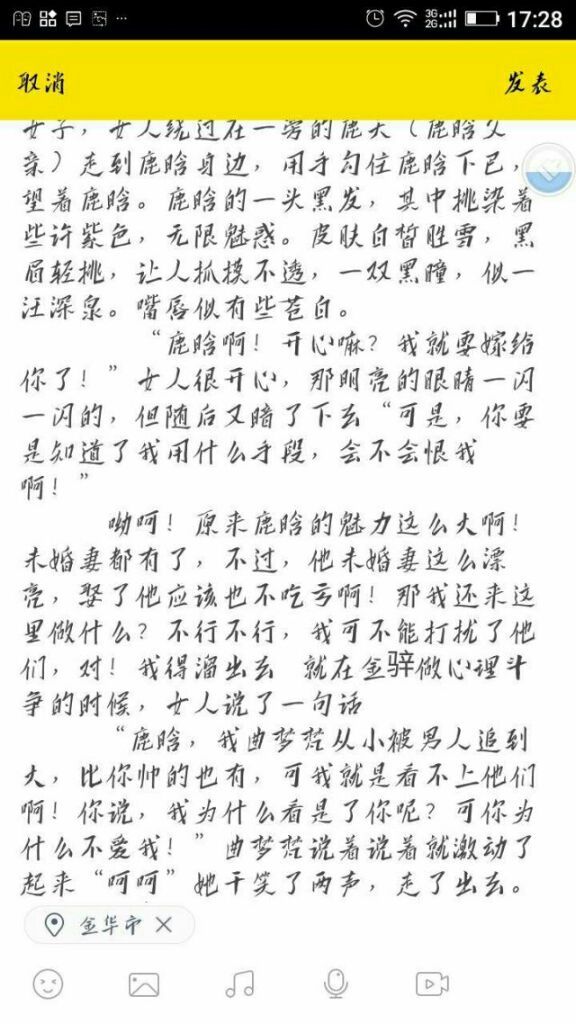 3G
2G
17:28
取消
发表
女子，女人绕过在一旁的鹿天（鹿晗父
亲）走到鹿晗身边，用手勾住鹿晗下巴，
望着鹿晗。鹿晗的一头黑发，其中挑染着
些许紫色，无限魅惑。皮肤白皙胜雪，黑
眉轻挑，让人抓摸不透，一双黑瞳，似一
汪深泉。嘴唇似有些苍白。
“鹿晗啊！开心嘛？我就要嫁给
你了！”女人很开心，那明亮的眼睛一闪
一闪的，但随后又暗了下去“可是，你要
是知道了我用什么手段，会不会恨我
啊！”
呦呵！原来鹿晗的魅力这么大啊！
未婚妻都有了，不过，他未婚妻这么漂
亮，娶了他应该也不吃亏啊！那我还来这
里做什么？不行不行，我可不能打扰了他
们，对！我得溜出去 就在金骍做心理斗
争的时候，女人说了一句话
“鹿晗，我曲梦梵从小被男人追到
大，比你帅的也有，可我就是看不上他们
啊！你说，我为什么看是了你呢？可你为
什么不爱我！”曲梦梵说着说着就激动了
起来“呵呵”她干笑了两声，走了出去。
金华市